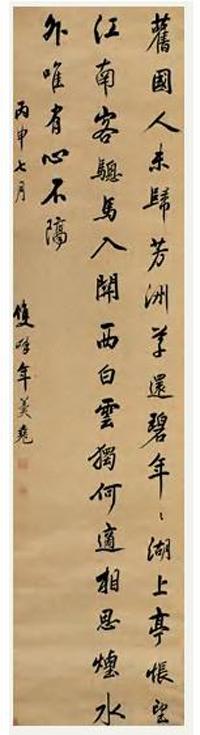 舊國人未歸芳洲草還碧年〻湖上亭悵望
江南客驄馬入關西白雲獨何適相思煙水
外唯有心不隔
丙申七月 雙峰年羹堯